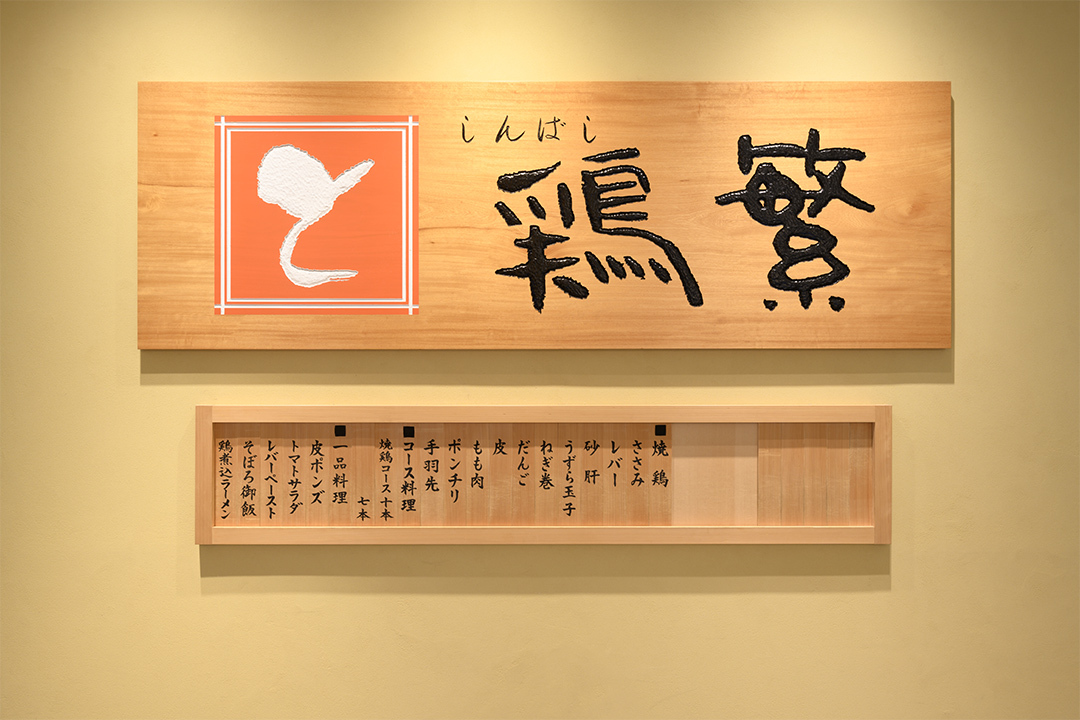 しんばし
鶏繁
と
■焼鶏
ささみ
レバー
砂肝
うずら玉子
ねぎ巻
だんご
皮
もも肉
ボンチリ
手羽先
■コース料理
焼鶏コース十本
七本
■一品料理
皮ポンズ
トマトサラダ
レバーペースト
そぼろ御飯
鶏煮込ラーメン